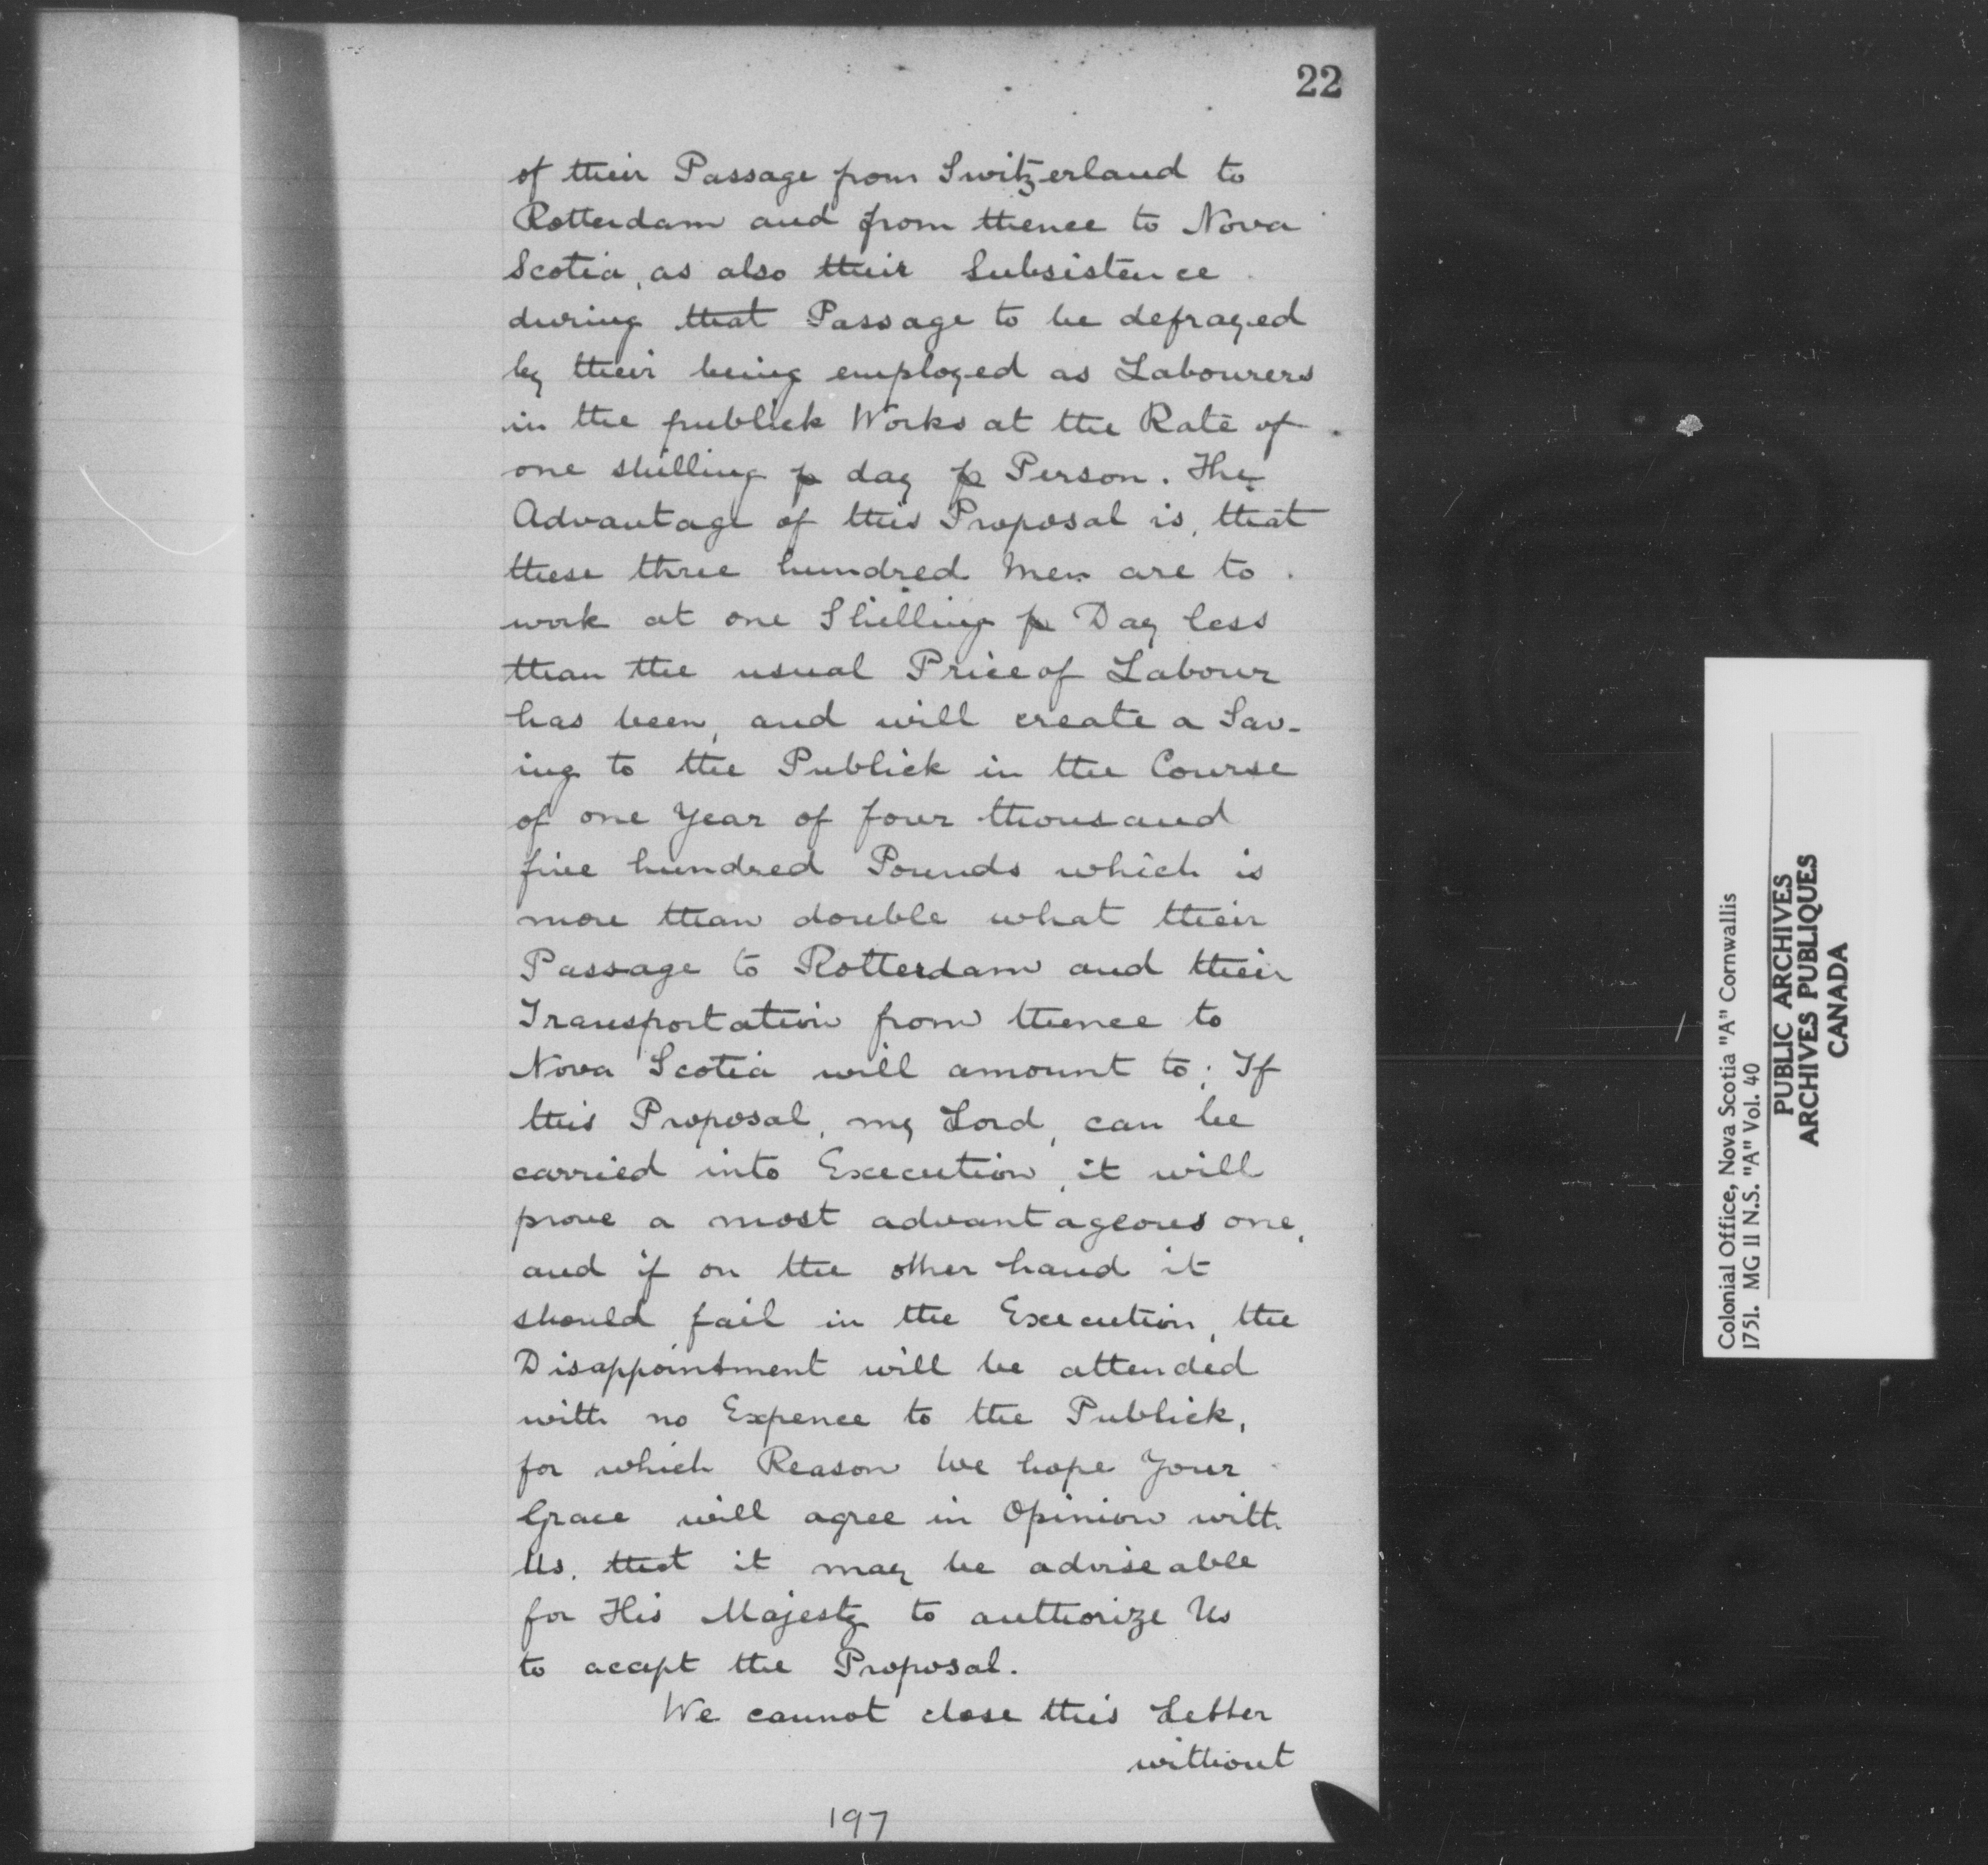 22
of their Passage from Switzerland to
Rotterdam and from thence to Nova
Scotia, as also their Subsistence
during that Passage to be defrayed
by their being employed as Labourers
in the publick Works at the Rate of
one shilling p day p Person. The
Advantage of this Proposal is, that
these three hundred Men are to
work at one Shilling p Day less
than the usual Price of Labour
has been, and will create a Sav-
ing to the Publick in the Course
of one Year of four thousand
five hundred Pounds which is
more than double what their
Passage to Rotterdam and their
Transportation from thence to
Nova Scotia will amount to; If
this Proposal, my Lord, can be
carried into Execution, it will
prove a most advantageous one,
and if on the other hand it
should fail in the Execution, the
Disappointment will be attended
with no Expence to the Publick,
for which Reason We hope Your
Grace will agree in Opinion with
Us, that it may be adviseable
for His Majesty to authorize Us
to accept the Proposal.
We cannot close this Letter
without
197
Colonial Office, Nova Scotia "A" Cornwallis
1751. MG 11 N.S. "A" Vol. 40
PUBLIC ARCHIVES
ARCHIVES PUBLIQUES
CANADA